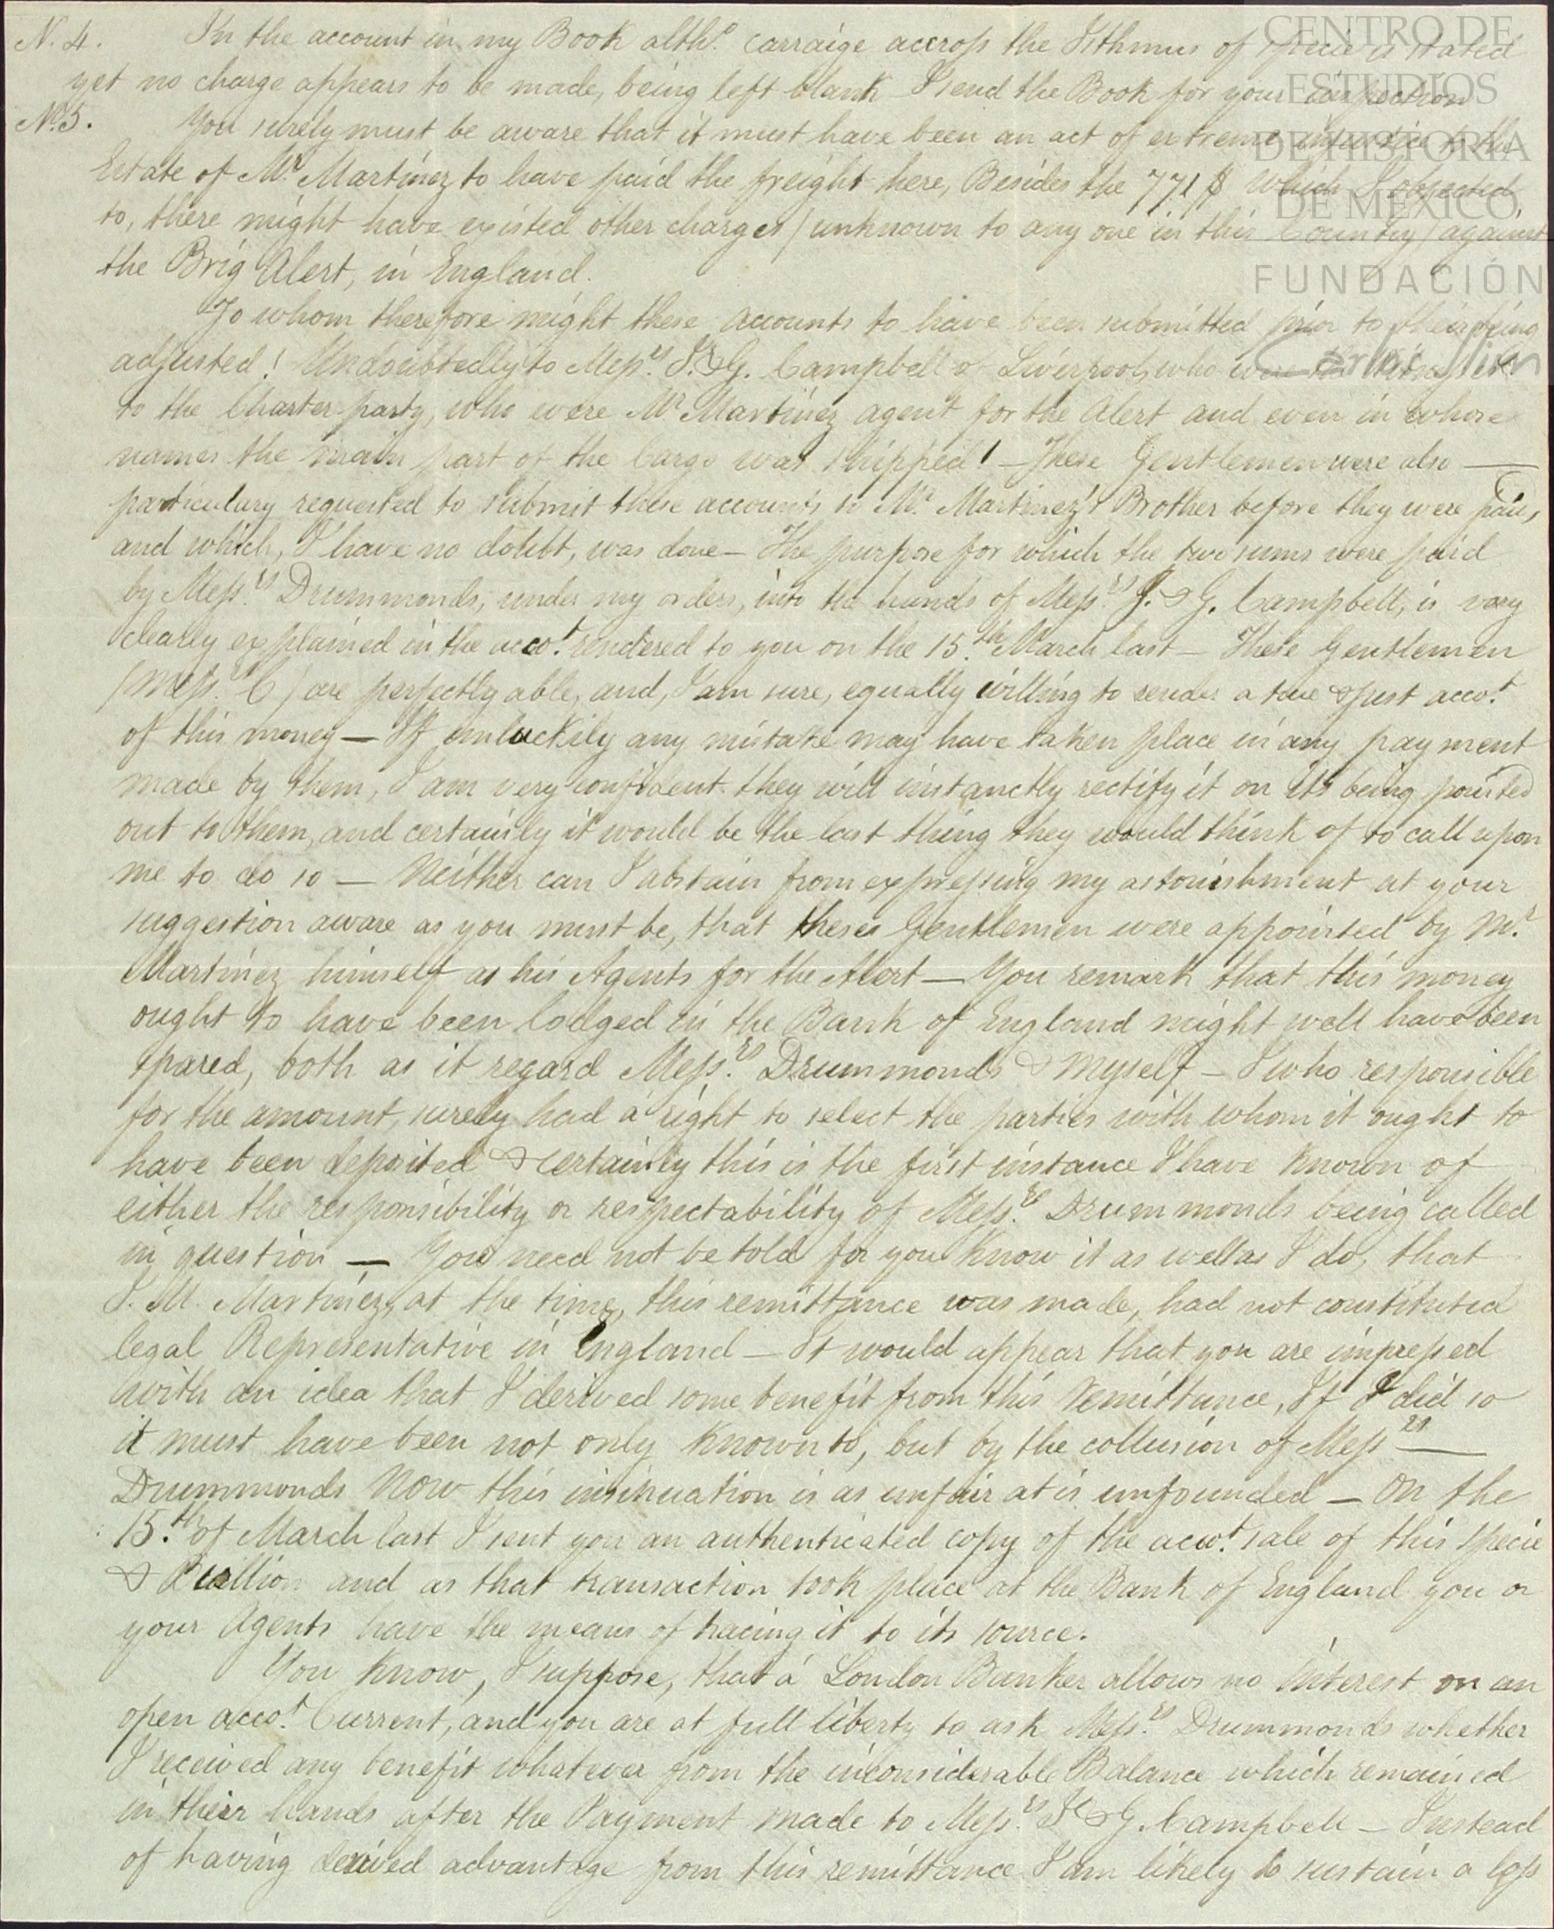 N. 4. In the account in my Book altho. carraige accross the Isthmus of specie is stated
yet no charge appears to be made, being left blank I send the Book for your inspection
No. 5. You surely must be aware that it must have been an act of extreme injustice to the
Estate of Mr. Martinez to have paid the freight here, Besides the 771$ which I objected
to, there might have existed other charges (unknown to any one in this Country) against
the Brig Alert, in England.
To whom therefore might these accounts to have been submitted prior to their being
adjusted! Undoubtedly to Messrs. J. & G. Campbell of Liverpool, who were the
to the Charter party, who were Mr. Martinez agent for the Alert and even in whose
names the main part of the Cargo was shipped! - These Gentlemen were also —
particulary requested to submit these accounts to Mr. Martinez's Brother before they were paid,
and which, I have no doubt, was done — The purpose for which the two sums were paid
by Messrs. Drummonds, under my orders, into the hands of Messrs. J. & G. Campbell, is very
clearly explained in the acco.t rendered to you on the 15.th March last — These Gentlemen
(Messrs. C) are perfectly able, and, I am sure, equally willing to render a true & just acco.t
of this money — If unluckily any mistake may have taken place in any payment
made by them, I am very confident they will instanctly rectify it on its being pointed
out to them, and certainly it would be the last thing they would think of to call upon
me to do so — Neither can I abstain from expressing my astonishment at your
suggestion aware as you must be, that theses Gentlemen were appointed by Mr.
Martinez himself as his Agents for the Alert — You remark that this money
ought to have been lodged in the Bank of England might well have been
spared, both as it regard Messrs. Drummonds & myself — I who responsible
for the amount, surely had a right to select the parties with whom it ought to
have been deposited & certainly this is the first instance I have known of
either the responsibility or respectability of Messrs. Drummonds being called
in question — You need not be told for you know it as well as I do, that
J. M. Martinez, at the time, this remittance was made, had not constituted
legal Representative in England — It would appear that you are impressed
with an idea that I derived some benefit from this remittance, If I did so
it must have been not only known to, but by the collusion of Messrs —
Drummonds Now this insinuation is as unfair at is unfounded — On the
15.th of March last I sent you an authenticated copy of the acco.t sale of this specie
& Bullion and as that transaction took place at the Bank of England you or
your Agents have the means of tracing it to its source.
You know, I suppose, that a London Banker allows no interest on an
open acco.t Current, and you are at full liberty to ask Messrs. Drummonds whether
I received any benefit whatever from the inconsiderable Balance which remained
in their hands after the Payment made to Messrs. J & G Campbell — Instead
of having derived advantage from this remittance I am likely to sustain a loss
CENTRO DE
ESTUDIOS
DE HISTORIA
DE MÉXICO
FUNDACIÓN
Carlos Slim